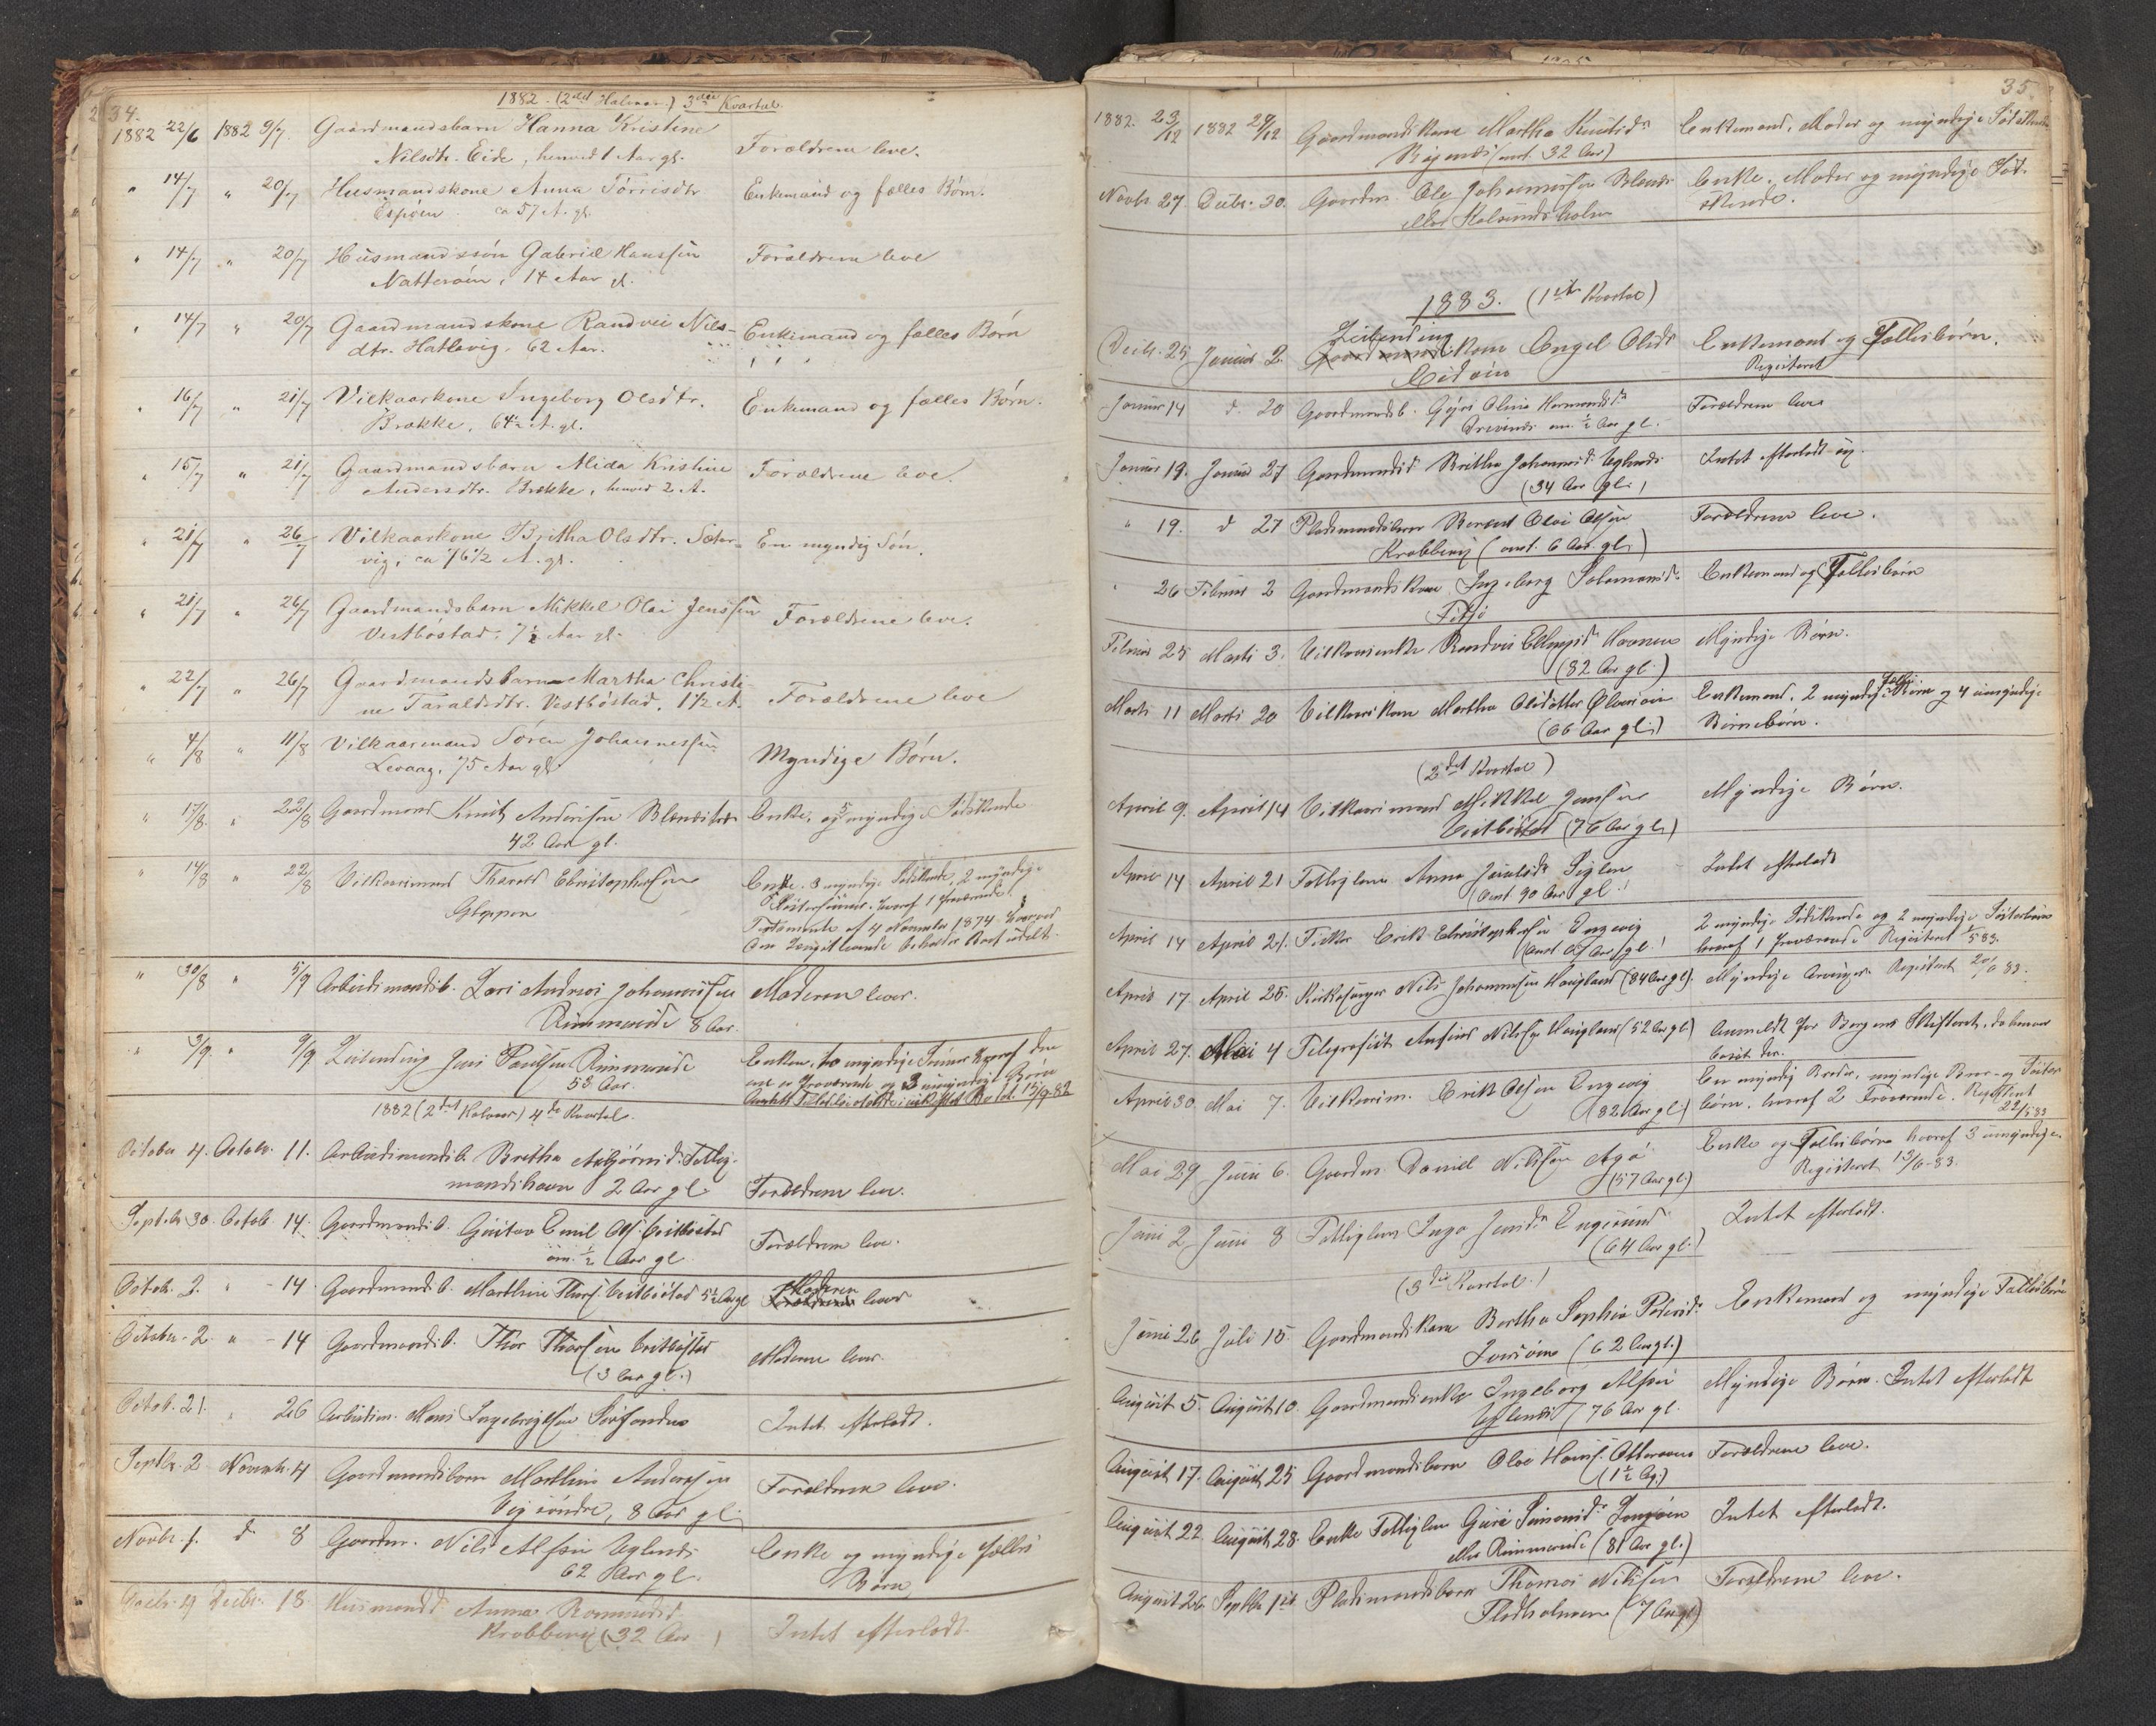 34.
1882. (2det Halvaar.) 3die Kvartal.
1882 22/6 1882 9/7. Gaardmandsbarn Hanna Kristine Forældrene leve.
Nilsdtr. Eide, henved 1 Aar gl.
" 14/7 " 20/7 Husmandskone Anna Tørrisdtr Enkemand og fælles Børn.
Espøen ca 57 A. gl.
" 14/7 " 20/7 Husmandssøn Gabriel Hanssen Forældrene leve
Natterøen, 14 Aar gl.
" 14/7 " 20/7 Gaardmandskone Randvei Nils- Enkemand og fælles Børn
dtr. Hatlevig, 62 Aar.
" 16/7 " 21/7 Vilkaarkone Ingeborg Olsdtr. Enkemand og fælles Børn.
Brække, 64½ A. gl.
" 15/7 " 21/7 Gaardmandsbarn Alida Kristine Forældrene leve.
Andersdtr. Brække, henved 2 A.
" 21/7 " 26/7 Vilkaarkone Britha Olsdtr. Sæter- En myndig Søn.
vig, ca 76½ A. gl.
" 21/7 " 26/7 Gaardmandsbarn Mikkel Olai Jenssen Forældrene leve.
Vestbøstad. 7½ Aar gl.
" 22/7 " 26/7 Gaardmandsbarn Martha Christi- Forældrene leve
ne Taraldsdtr. Vestbøstad, 1½ A.
" 4/8 " 11/8 Vilkaarmand Søren Johannessen Myndige Børn.
Levaag, 75 Aar gl.
" 17/8. " 22/8 Gaardmand Knut Andersen Enke, og 5 myndige Sødskende
42 Aar gl.
" 14/8 " 22/8 Vilkaarsmand Tharald Christophersen Enke. 3 myndige Sødskende, 2 myndige
Gloppen Søstersønner, hvoraf 1 fraværende.
Testamente af 4 November 1874 hvorved
den Længstlevende beholder Boet udelt.
" 30/8 " 5/9 Arbeidsmandsb. Lars Andreas Johannessen Moderen lever.
Rimmereide 8 Aar.
" 3/9. " 9/9 Leilending Jens Paulsen Rimmereide Enken, to myndige Sønner hvoraf den
53 Aar. ene er fraværende og 3 umyndige Børn
1882 (2det Halvaar) 4de Kvartal.
October 4. Octobr. 11. Arbeidsmandsb. Britha Asbjørnsd. Fattig-
mandshavn 2 Aar gl Forældrene lever.
Septebr 30. Octob. 14. Gaardmandsb. Gustav Emil Olss. Vestbøstad Forældrene leve.
om. ½ Aar gl
Octob. 2. " - 14. Gaardmandsb. Marthine Thors. Vestbøstad 5½ Aar gl Moderen lever
October 2 " - 14 Gaardmandsb. Thor Thorsen Vestbøstad Moderen lever.
(3 Aar gl.)
Octob. 21. " 26 Arbeidsm. Mons Ingebrigtsen Intet efterladt.
Septbr. 2 Novmb. 4 Gaardmandsbarn Marthin Andersen Forældrene leve.
Vig søndre, 8 Aar gl.
Novbr. 1. d 8 Gaardm. Nils Alfsen Uglenes Enke og myndige fælles
62 Aar gl. Børn
Decbr. 18. Husmandsd. Anna Rasmusd. Intet efterladt.
Krabbevig (32 Aar)
35.
1882. 23/12 1882 29/12 Gaardmandskone Martha Knutsdr Enkemand, Moder og myndige Sødskende
(omt. 32 Aar)
Novbr 27 Decbr. 30. Gaardm. Ole Johannessen Enke. Moder og myndige Sød-
eller skende.
1883. (1ste Kvartal)
Decbr. 25 Januar 2. Leilending kone Engel Olsdr Enkemand og Fællesbørn.
Eidøen Registeret
Januar 14 d. 20 Gaardmandsb. Guri Oline Hermansdr Forældrene leve
om. ½ Aar gl.
Januar 19. Januar 27 Gaardmandsd. Britha Johannesd. Uglenes Intet efterladt sig.
(34 Aar gl.)
" 19. d 27 Pladsmandsbarn Berent Olai Olsen Forældrene leve.
Krabbevig (omt. 6 Aar gl.)
" 26 Februar 2 Gaardmandskone Ingeborg Salomonsdr Enkemand og Fællesbørn
Fitje
Februar 25 Marts 3. Vilkaarsenke Randvei Ellingsdr Havnen Myndige Børn.
(82 Aar gl.)
Marts 11 Marts 20 Vilkaarskone Martha Olsdatter Enkemand, 2 myndige Fælles Børn og 4 umyndige
(66 Aar gl.) Børnebørn.
(2det Kvartal)
April 9. April 14 Vilkaarsmand Mikkel Jenssen Myndige Børn.
Vestbøstad (76 Aar gl.)
April 14 April 21 Fattiglem Anna Jensdr Intet efterladt
(omt 90 Aar gl.)
April 14 April 21. Fisker Erik Christophersen Engevig 2 myndige Sødskende og 2 myndige Søsterbørn
(omt 67 Aar gl.) hvoraf 1 fraværende Registeret 1/5 83.
April 17 April 25. Kirkesanger Nils Johannessen Haugland (84 Aar gl). Myndige Arvinger. Registeret 20/6 83.
April 27. Mai 4 Telegrafist Anfind Nilssen Haugland (52 Aar gl) Anmeldt for Bergens Skifteret, da han var
bosat der.
April 30 Mai 7. Vilkaarsm. Erik Olsen Engevig En myndig Broder, myndige Bror- og Søster
(82 Aar gl.) børn, hvoraf 2 Fraværende. Registeret
22/5 83
Mai 29 Juni 6. Gaardm. Daniel Nilssen Agø Enke og Fællesbørn hvoraf 3 umyndige.
(57 Aar gl.) Registeret 13/6-83.
Juni 2 Juni 8 Fattiglem Inga Jensdr Engesund Intet efterladt.
(64 Aar gl.)
(3die Kvartal.)
Juni 26 Juli 15. Gaardmandskone Bertha Sophia Pedersdr Enkemand og myndige Fællesbørn
(62 Aar gl.)
August 5. August 10. Gaardmandsenke Ingeborg Alfsen Myndige Børn. Intet efterladt
Uglenes (76 Aar gl.
August 17. August 25 Gaardmandsbarn Olai Hanss. Forældrene leve.
(1½ Ag.)
August 22 August 28. Enke Fattiglem Guri Simonsdr Intet efterladt.
eller Rimmereide (81 Aar gl.)
August 26 Septbr 1ste Pladsmandsbarn Thomas Nilssen Forældrene leve.
Fladholmen (7 Aar gl)